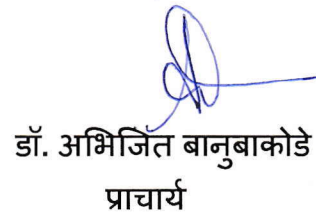 डॉ. अभिजित बानुबाकोडे
प्राचार्य